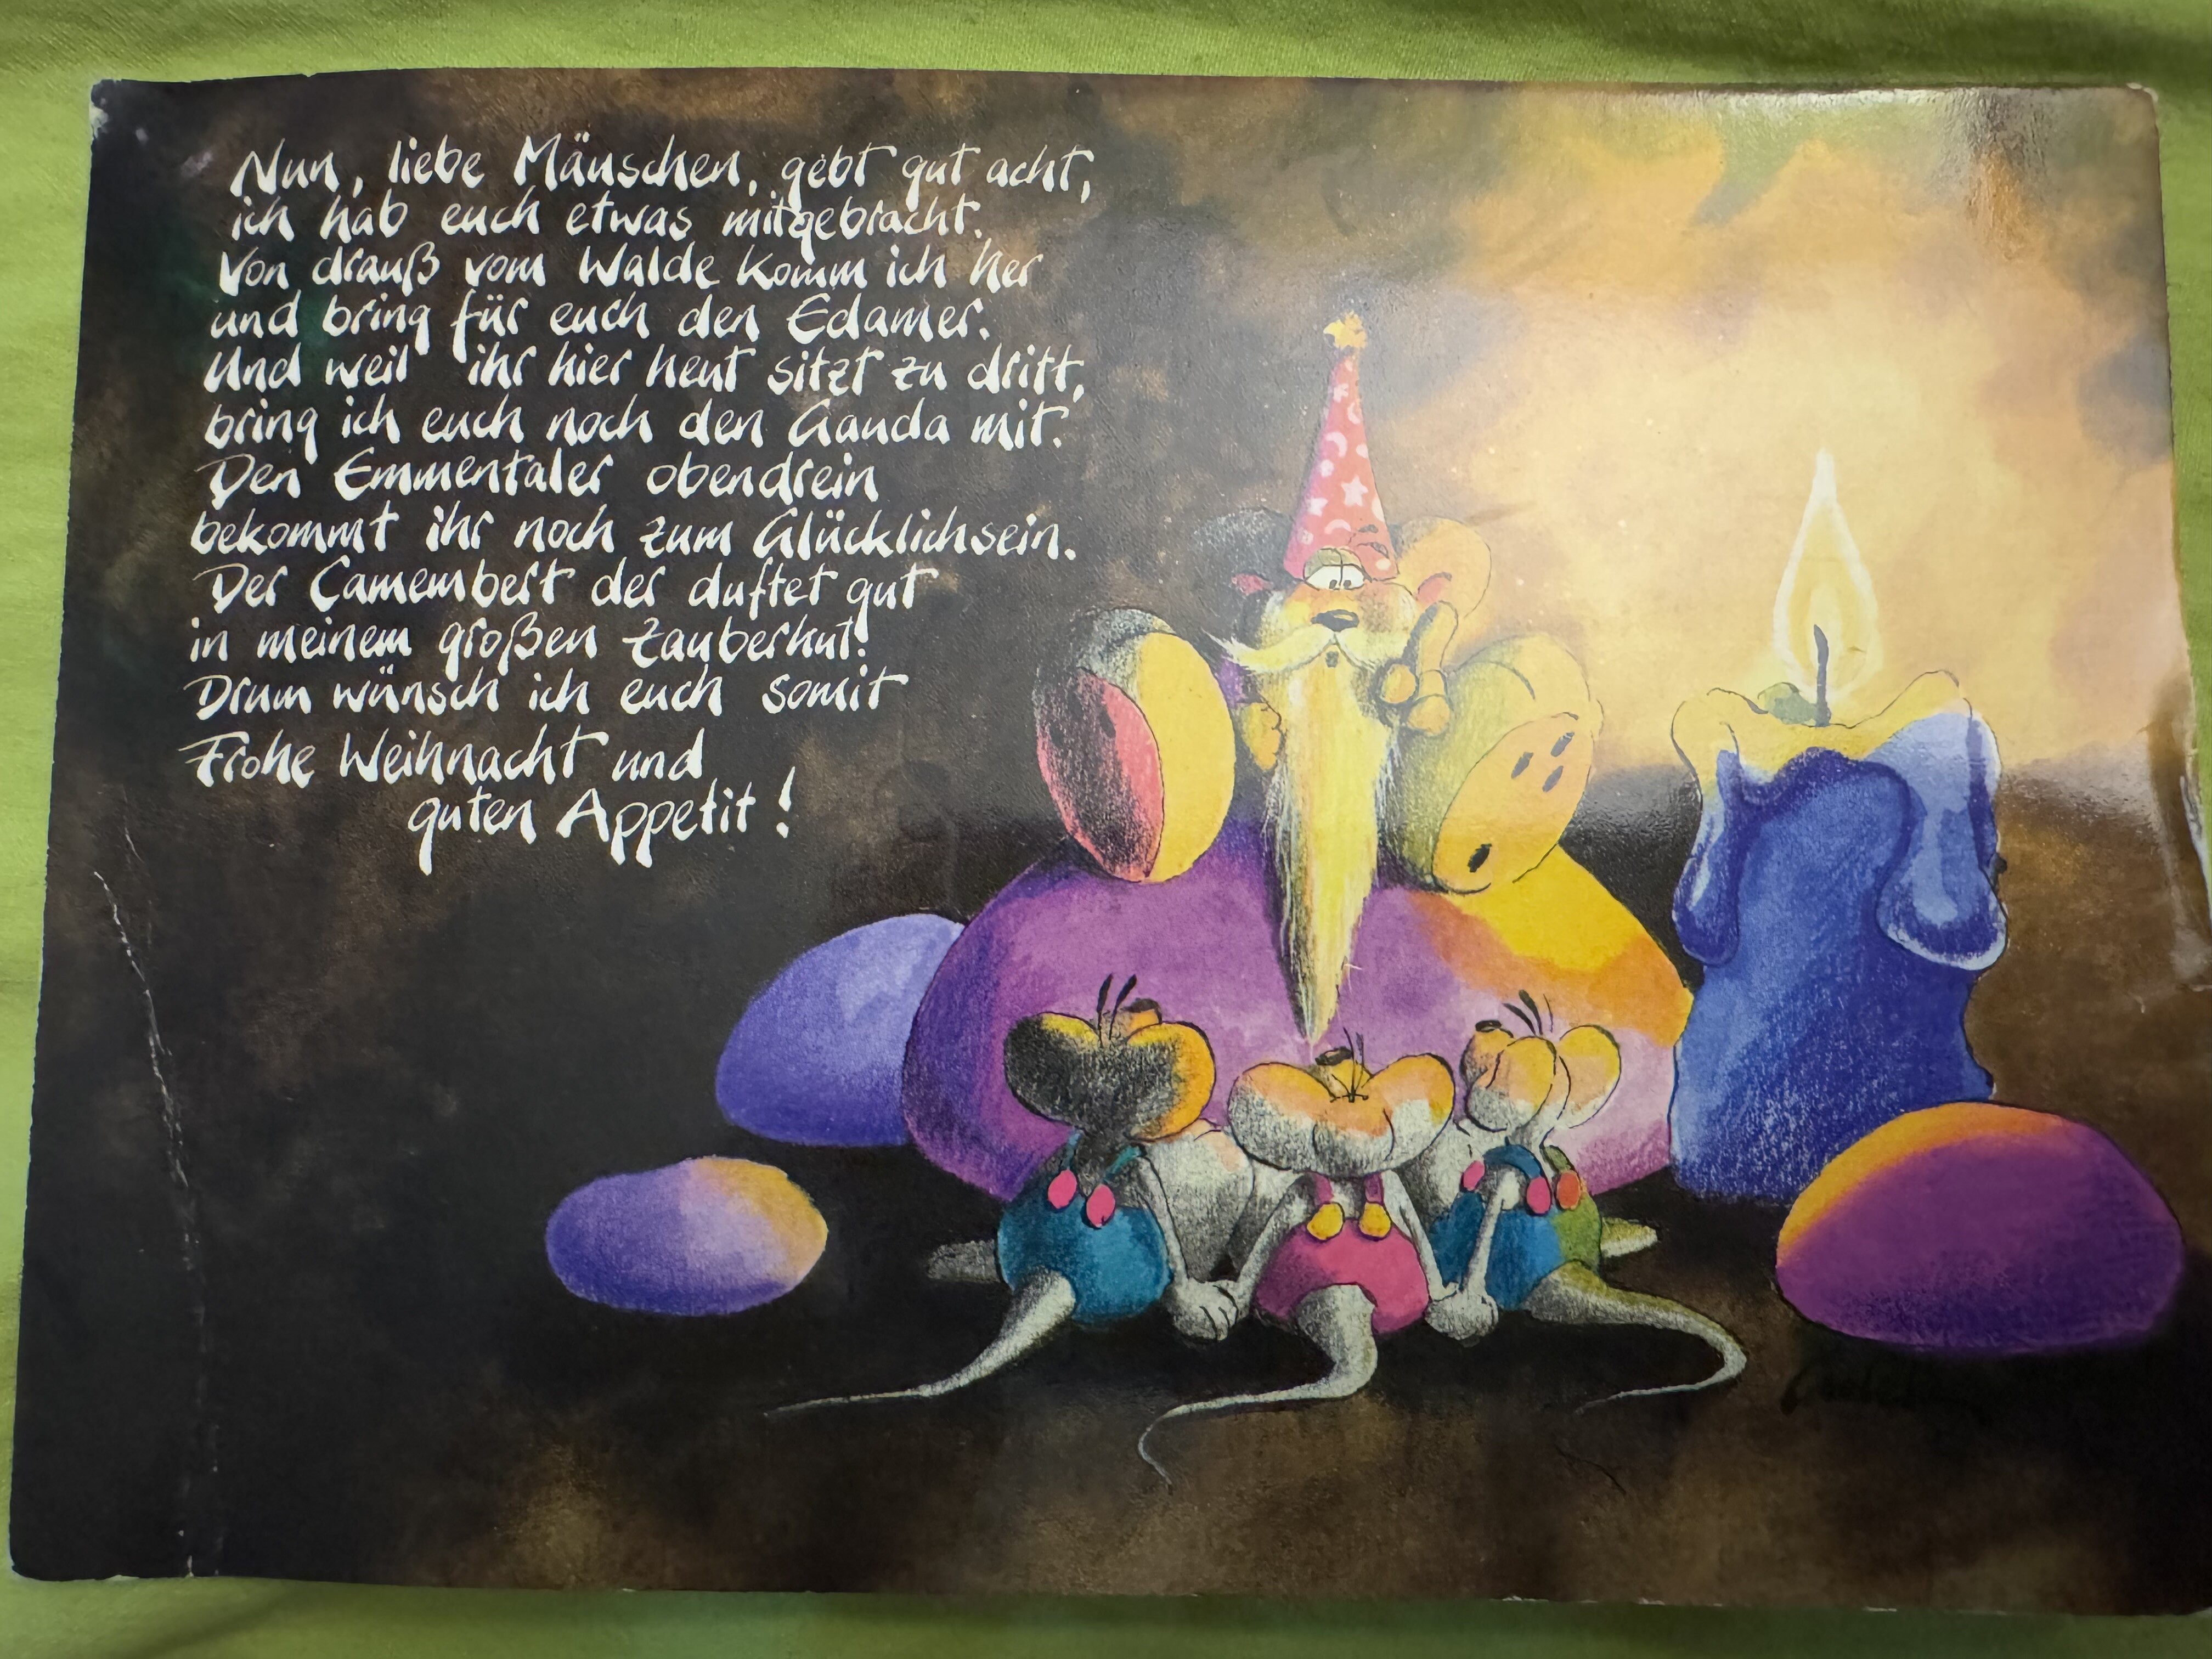 Nun, liebe Mäuschen, gebt gut acht,
ich hab euch etwas mitgebracht.
Von drauß vom Walde komm ich her
und bring für euch den Edamer.
Und weil ihr hier heut sitzt zu dritt,
bring ich euch noch den Gauda mit.
Den Emmentaler obendrein
bekommt ihr noch zum Glücklichsein.
Der Camembert der duftet gut
in meinem großen Zauberhut!
Drum wünsch ich euch somit
Frohe Weihnacht und
guten Appetit!